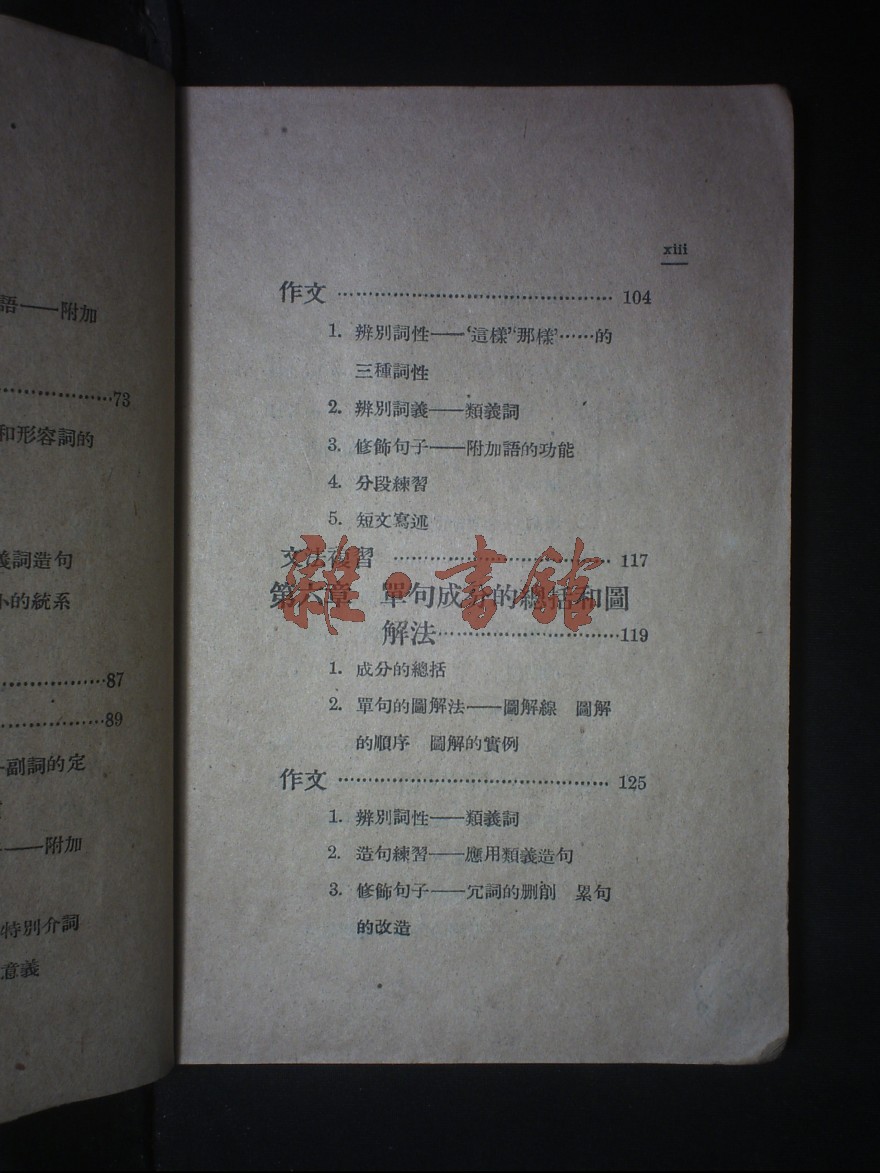 語——附加
……………73
和形容詞的
義詞造句
小的統系
……………87
……………89
副詞的定
——附加
特別介詞
意義
xiii
作文……………………………………104
1. 辨別詞性——‘這樣’‘那樣’……的
三種詞性
2. 辨別詞義——類義詞
3. 修飾句子——附加語的功能
4. 分段練習
5. 短文寫述
文法複習……………………………117
第六章 單句成分的總括和圖
解法……………………………119
1. 成分的總括
2. 單句的圖解法——圖解線 圖解
的順序 圖解的實例
作文……………………………………125
1. 辨別詞性——類義詞
2. 造句練習——應用類義造句
3. 修飾句子——冗詞的刪削 累句
的改造
雜·書館